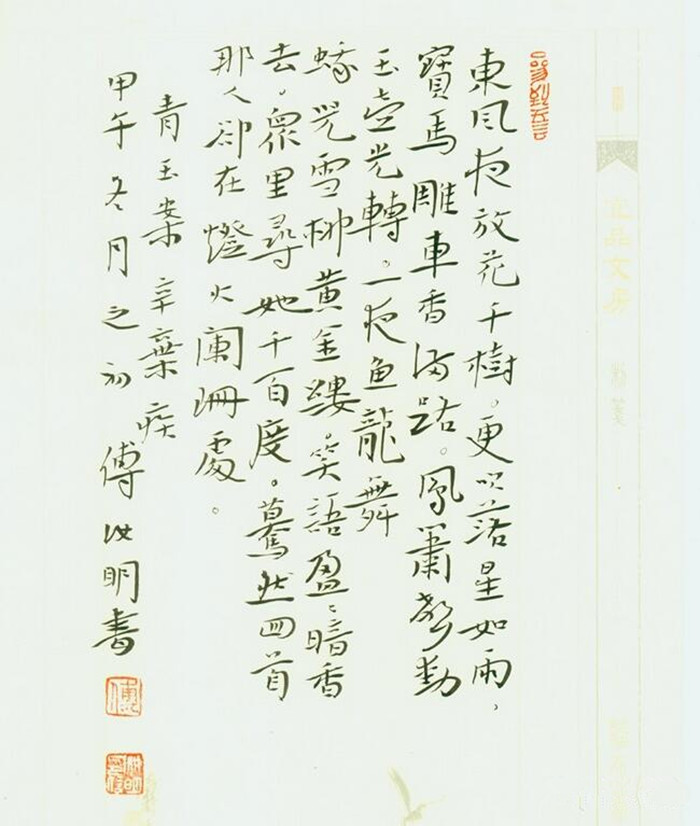 東风夜放花千樹。更吹落星如雨，
寶馬雕車香满路。鳳簫聲動
玉壺光轉。一夜鱼龍舞
蛾児雪柳黄金縷。笑語盈盈暗香
去。眾里尋她千百度。驀然回首
那人卻在燈火闌珊處。
青玉案 辛棄疾
甲午冬月之初 傅汝明書
文房